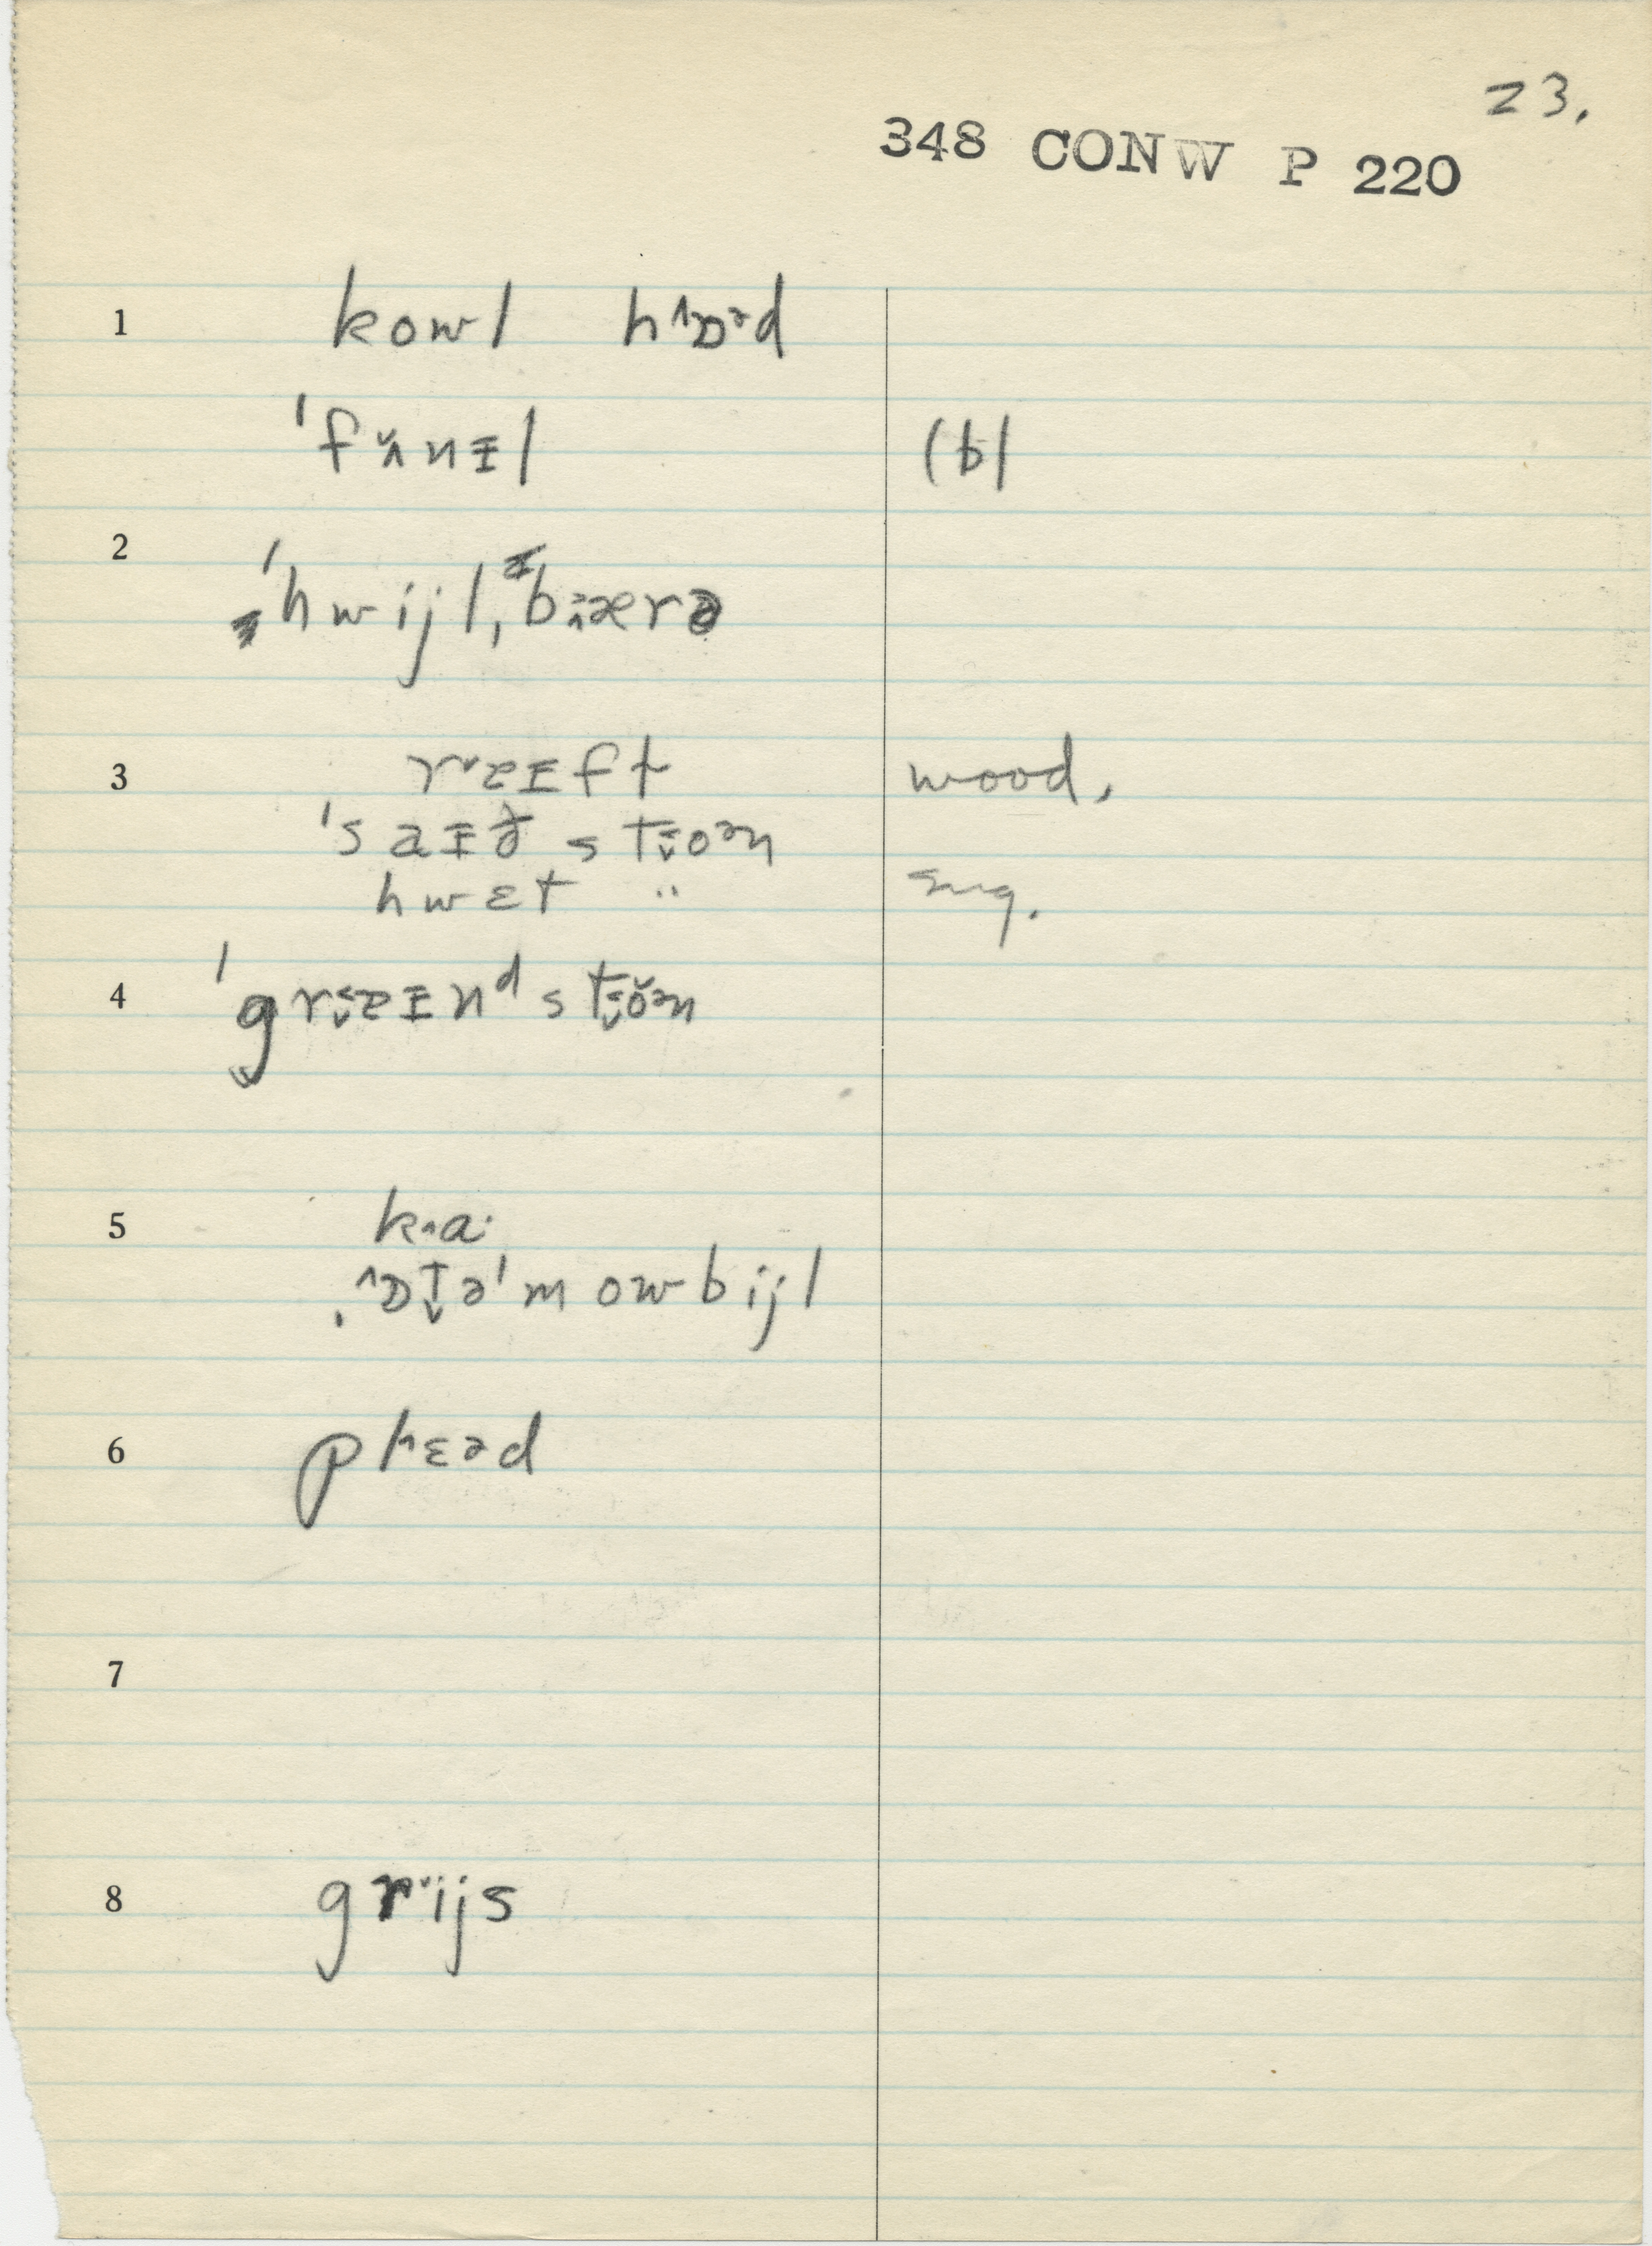 23.
348 CONW P 220
1 kowl hɒᵊd
ˈfʌ̆nɪ̵l (b)
2
ˈhwijlˌbærə
3 rɐɪ̵ft wood.
ˈsaɪ̵ð stoən
hwɛt " sug.
4 ˈgrɐɪ̵nᵈ stŏən
5 ka·
ˌɒtəˈmowbijl
6
7
8 grijs